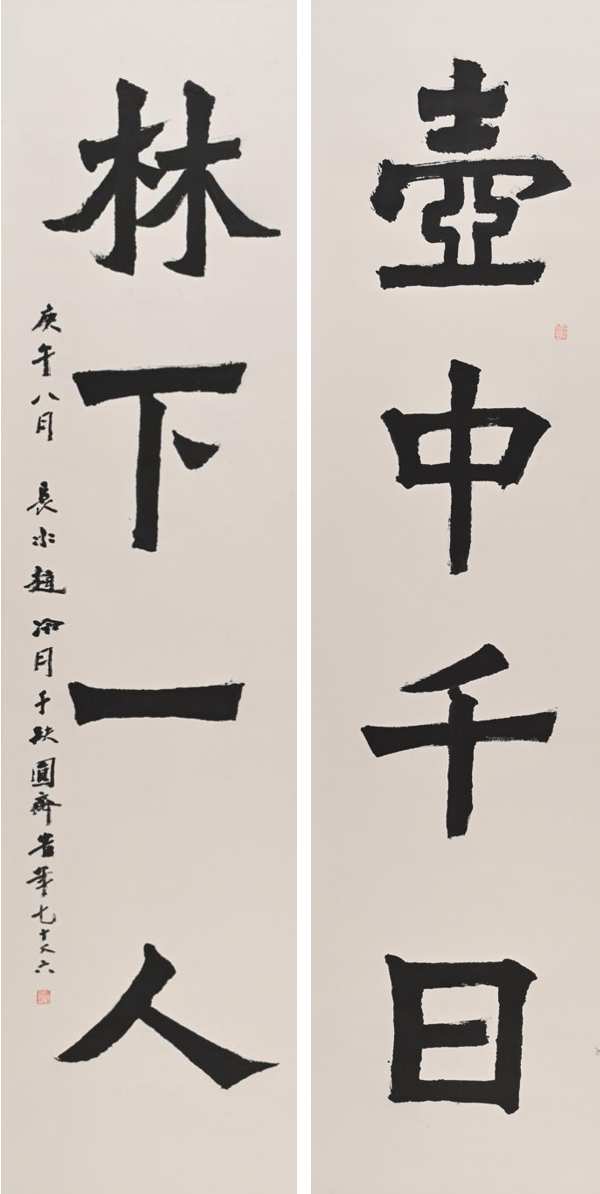 壺中千日
林下一人
庚午八月 長水趙冷月于缺圓齋旹年七十又六